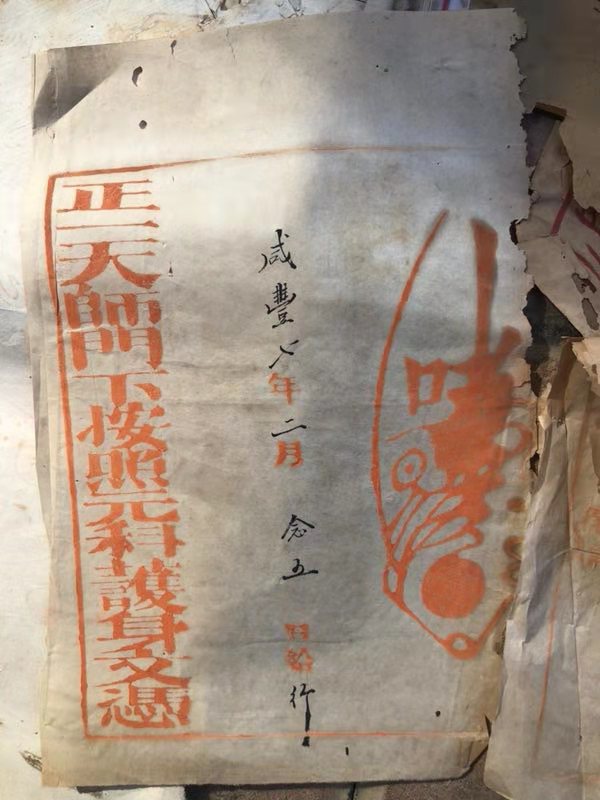 咸豐七年二月 念五 日給行
正一天師門下按照元科護身文憑